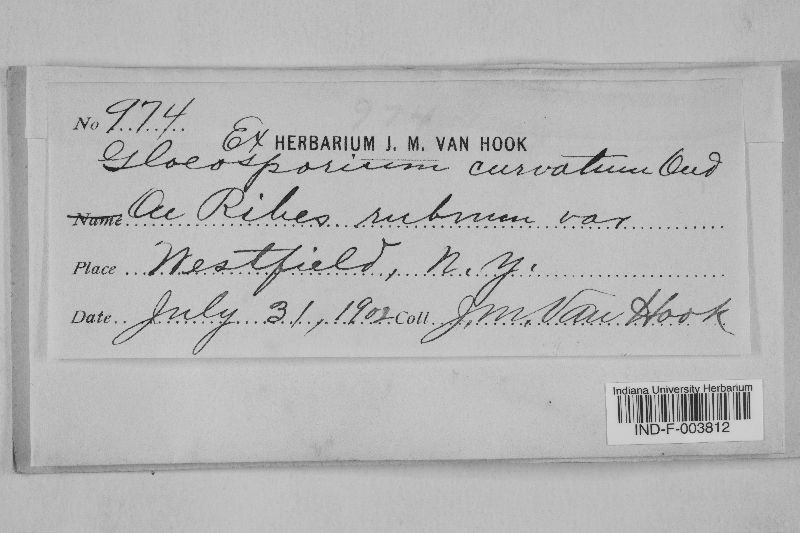 No 974
Ex HERBARIUM J. M. VAN HOOK
Gloeosporium curvatum Oud
Name On Ribes rubrum var
Place Westfield, N. Y.
Date July 31, 1902 Coll. J. M. Van Hook
Indiana University Herbarium
IND-F-003812